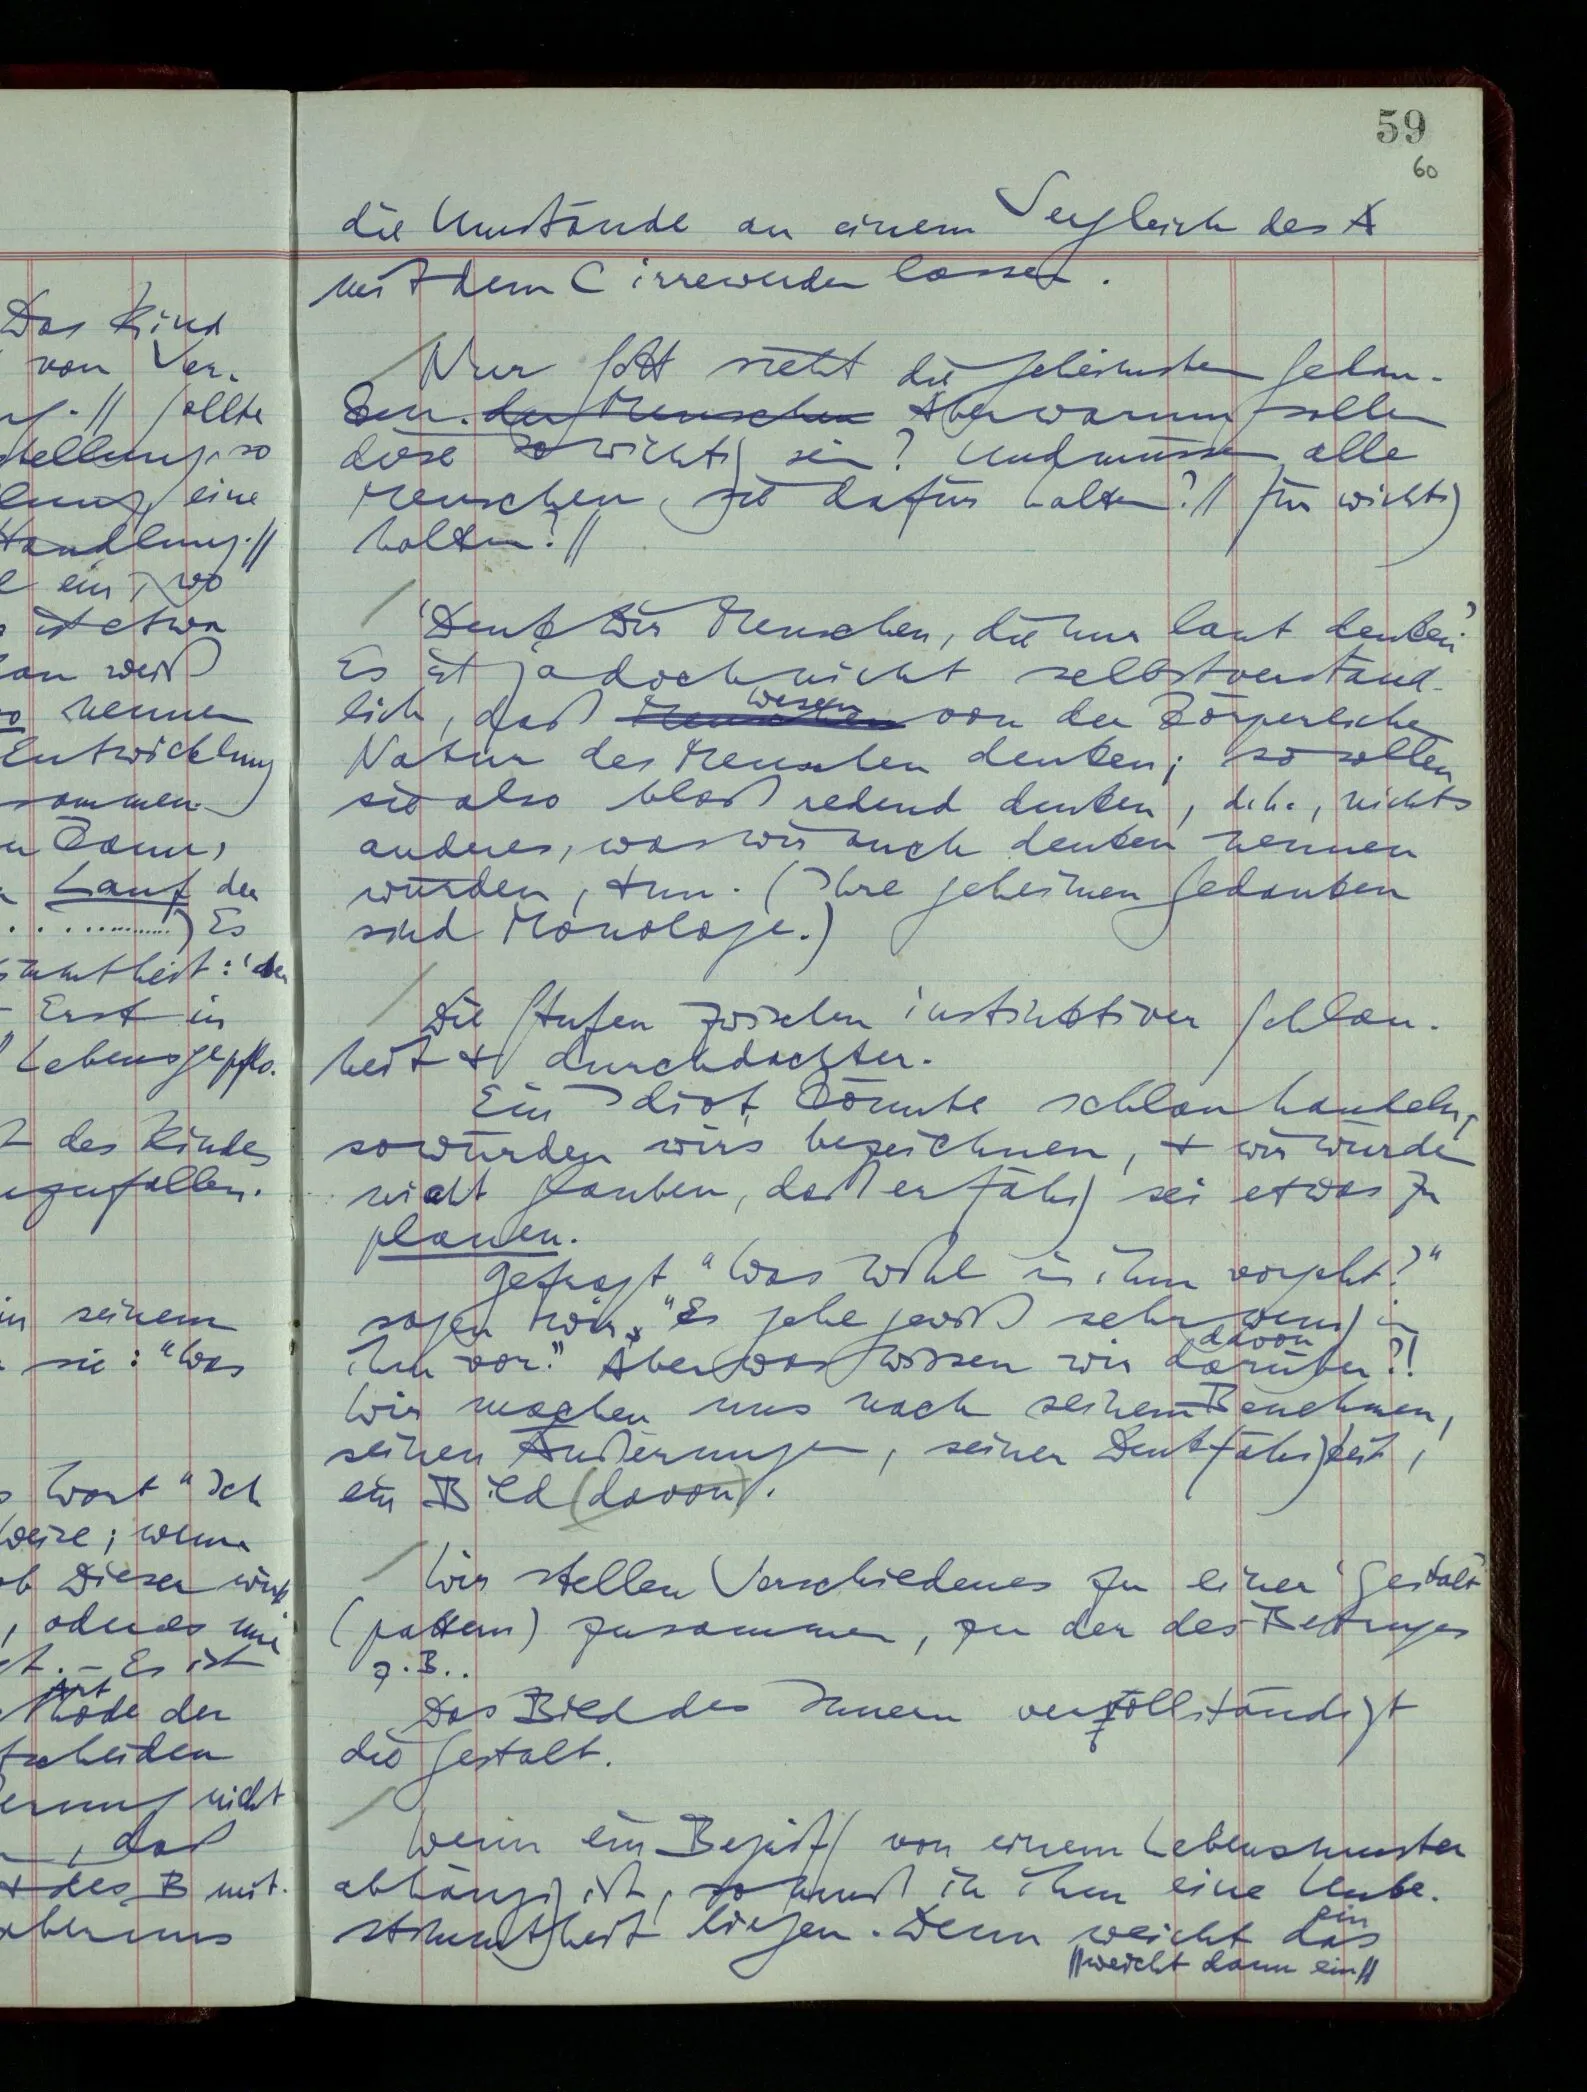 Das Kind
von Ver-
// sollte
stellung, so
eine
Handlung.//
ein, wo
ist etwa
man weiß
nennen
Entwicklung
zusammen-
kann,
Lauf der
..............) Es
Erst in
Lebensgepflo-
des Kindes
in seinem
sie: "Was
Wort "Ich
Weise; wenn
ob Dieser
, oder es mir
. – Es ist
Art
Mode der
nicht
, daß
+ des B mit-
59
60
die Umstände an einem Vergleich des A
mit dem C irrewerden lassen.
Nur Gott sieht die geheimsten Gedan-
ken. der Menschen Aber warum sollen
diese so wichtig sein? Und müssen alle
Menschen sie dafür halten?// für wichtig
halten?//
'Denk Dir Menschen, die nur laut denken.'
Es ist jadoch nicht selbstverständ-
lich, daß Menschen Wesen von der körperlichen
Natur des Menschen denken; so sollen
sie also bloß redend denken, d.h., nichts
anderes, was wir auch denken nennen
würden, tun. (Ihre geheimen Gedanken
sind Monologe.)
Die Stufen zwischen instinktiver Schlau-
heit + durchdachter.
Ein Idiot könnte schlau handeln,
so würden wir's bezeichnen, + wir würden
nicht glauben, daß er fähig sei etwas zu
planen.
Gefragt "Was wohl in ihm vorgeht?"
sagen wir, "Es gehe gewiß sehr wenig in
ihm vor." Aber was wissen wir darüber davon?!
Wir machen uns nach seinem Benehmen,
seinen Äußerungen, seiner Denkfähigkeit,
ein Bild (davon).
Wir stellen Verschiedenes zu einer 'Gestalt'
(pattern) zusammen, zu der des Betruges
z.B..
Das Bild des Innern vervollständigt
die Gestalt.
Wenn ein Begriff von einem Lebensmuster
abhängig ist, so muß in ihm eine Unbe-
stimmtheit liegen. Denn weicht das ein
//weicht dann ein//